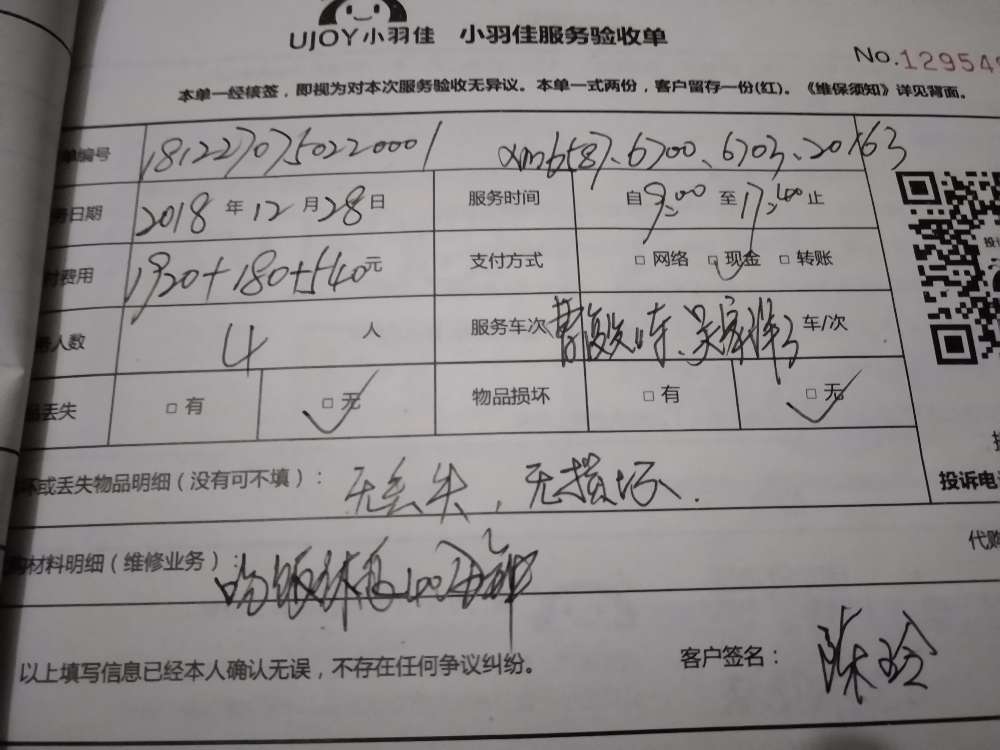 UJOY小羽佳 小羽佳服务验收单
No.129549
本单一经核签，即视为对本次服务验收无异议。本单一式两份，客户留存一份(红)。《维保须知》详见背面。
单编号 1812270750220001 xm6587、6700、6703、20163
务日期 2018 年 12 月 28 日 服务时间 自 9:00 至 17:40 止
费用 1920+180+540元 支付方式 □ 网络 □ 现金 □ 转账
人数 4 人 服务车次 车/次
丢失 □ 有 □ 无 物品损坏 □ 有 □ 无
坏或丢失物品明细（没有可不填）： 无丢失，无损坏.
投诉电
材料明细（维修业务）： 吃饭休息40分钟
代购
以上填写信息已经本人确认无误，不存在任何争议纠纷。
客户签名： 陈玲